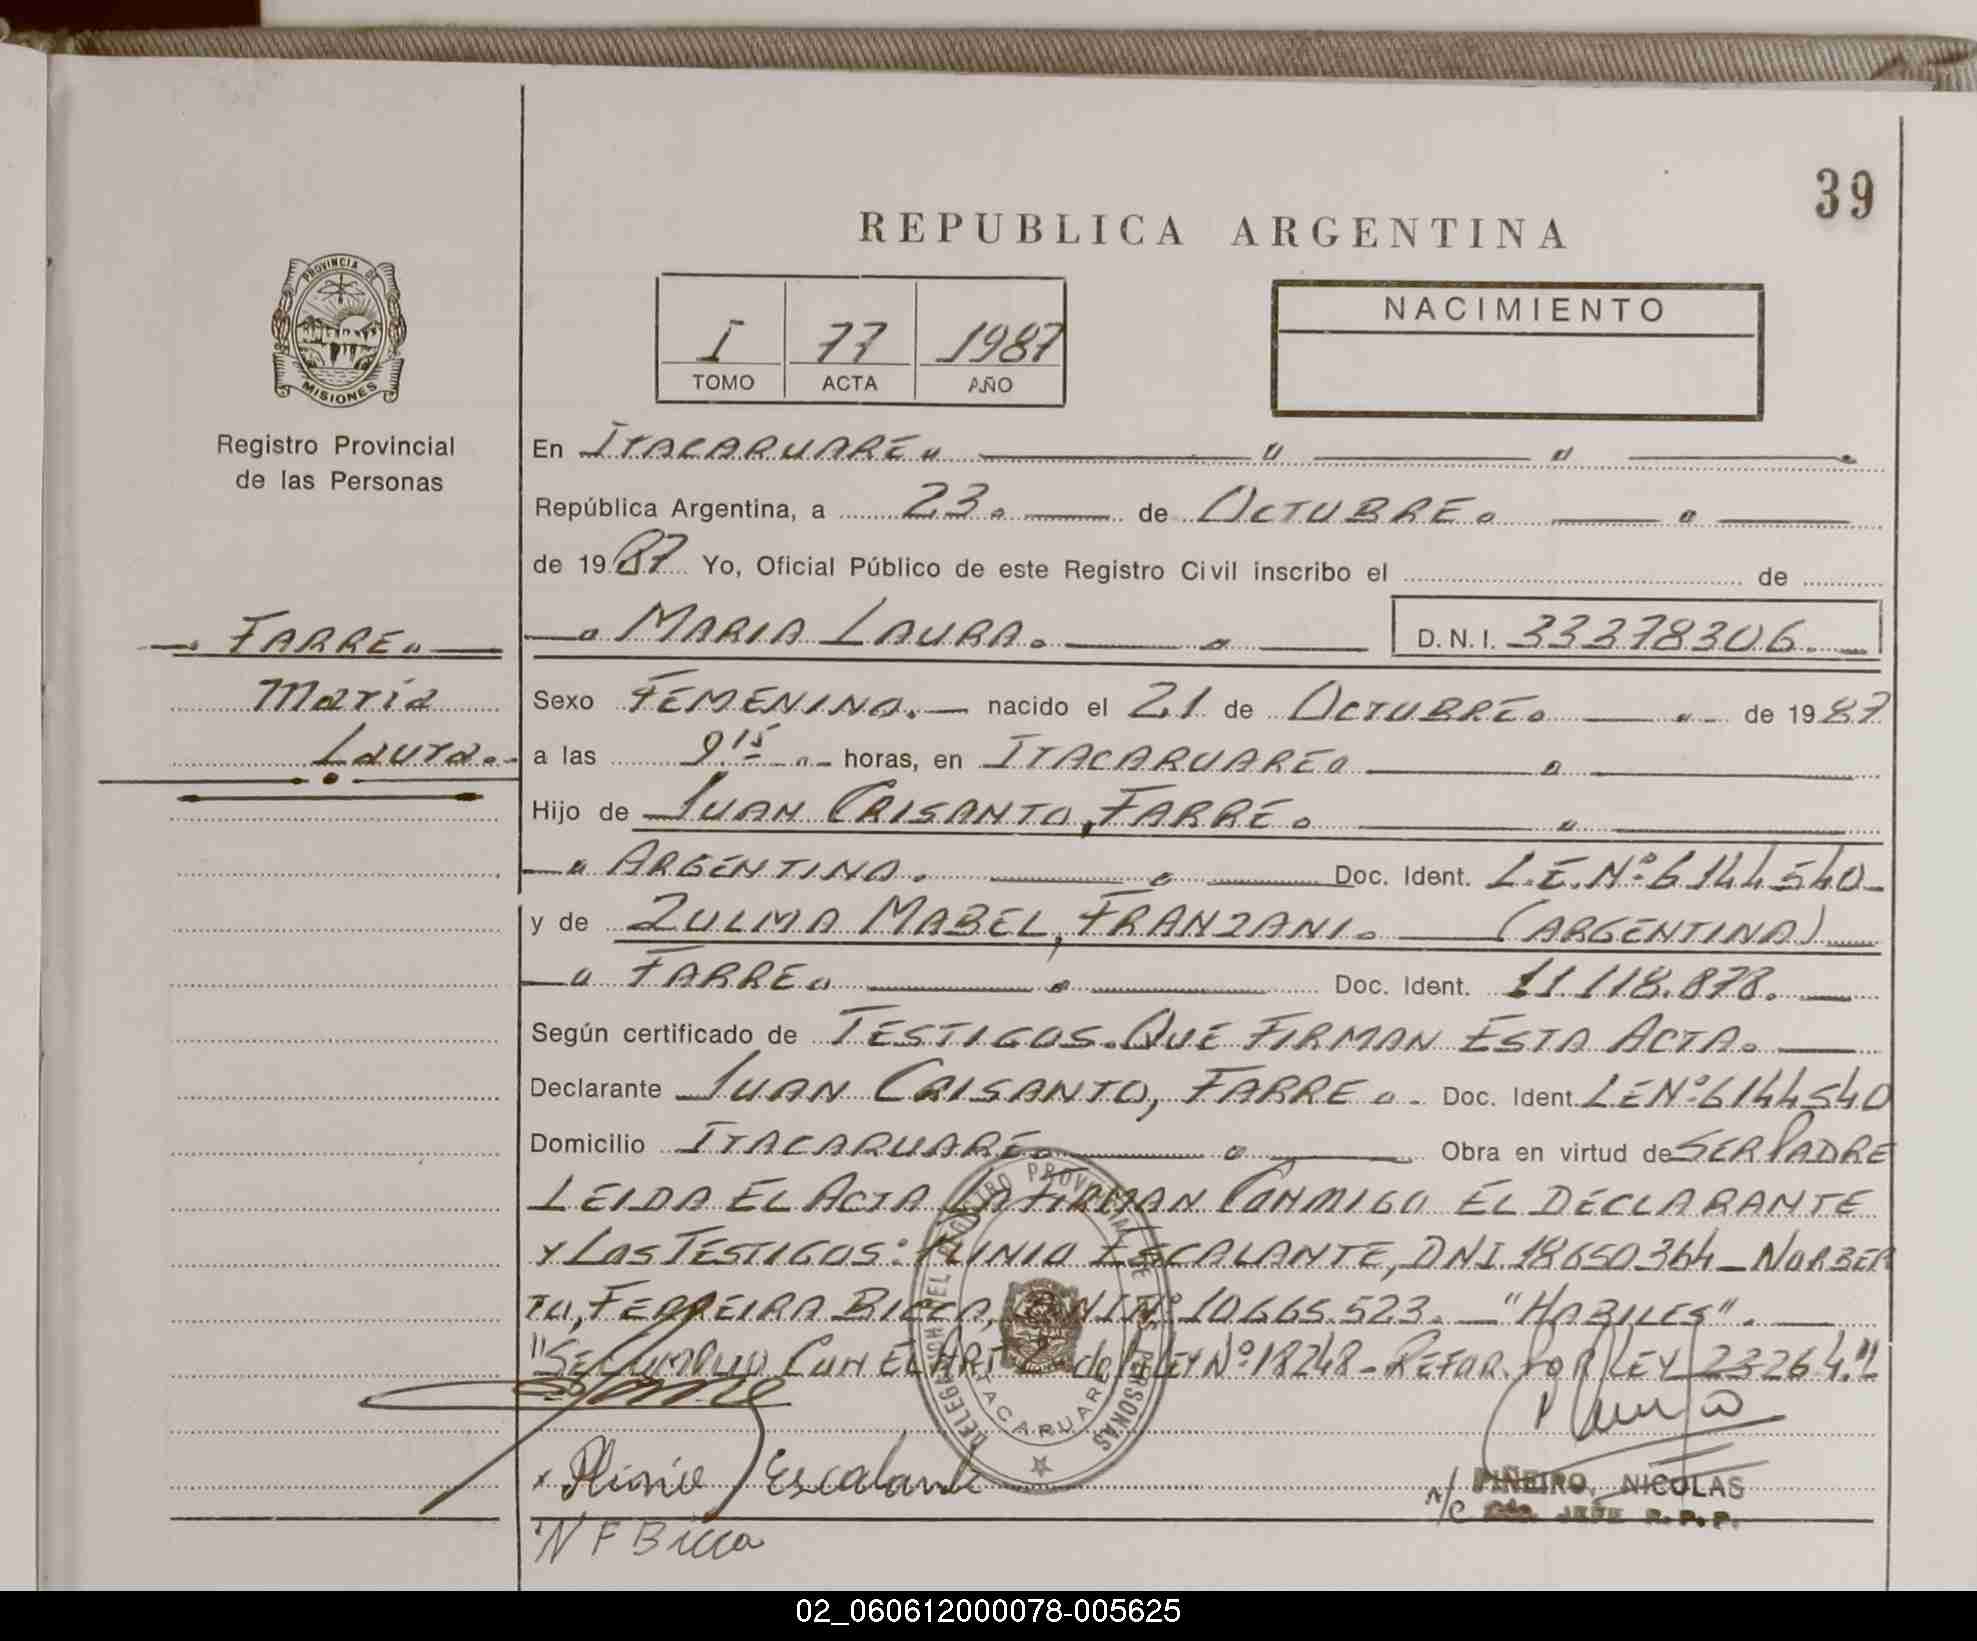 39
REPUBLICA ARGENTINA
PROVINCIA DE
MISIONES
Registro Provincial
de las Personas
I 77 1987
TOMO ACTA AÑO
NACIMIENTO
En ITACARUARE
República Argentina, a 23 de OCTUBRE
de 1987 Yo, Oficial Público de este Registro Civil inscribo el de
FARRE
MARIA LAURA. D.N.I. 33378306.
Maria
Laura.
Sexo FEMENINO. nacido el 21 de OCTUBRE de 1987
a las 9 15 horas, en ITACARUARE
Hijo de JUAN CRISANTO, FARRE
ARGENTINO. Doc. Ident. L.E.Nº 6144540
y de ZULMA MABEL, FRANZANI. (ARGENTINA)
FARRE Doc. Ident. 11.118.878.
Según certificado de TESTIGOS QUE FIRMAN ESTA ACTA.
Declarante JUAN CRISANTO, FARRE Doc. Ident. LENº 6144540
Domicilio ITACARUARE Obra en virtud de SER PADRE
LEIDA EL ACTA LA FIRMAN CONMIGO EL DECLARANTE
Y LOS TESTIGOS: PLINIO ESCALANTE, DNI 18650364 - NORBER
TO, FERREIRA BICCA, DNI Nº 10.665.523. "HABILES".
"SE CUMPLIO CON EL ART 2 de LEY Nº 18248 - REFOR. POR LEY 23264."
DELEGACION DEL REGISTRO PROVINCIAL DE LAS PERSONAS
ITACARUARE
Plinio Escalante
N F Bicca
PIÑEIRO, NICOLAS
JEFE R.P.P.
02_060612000078-005625